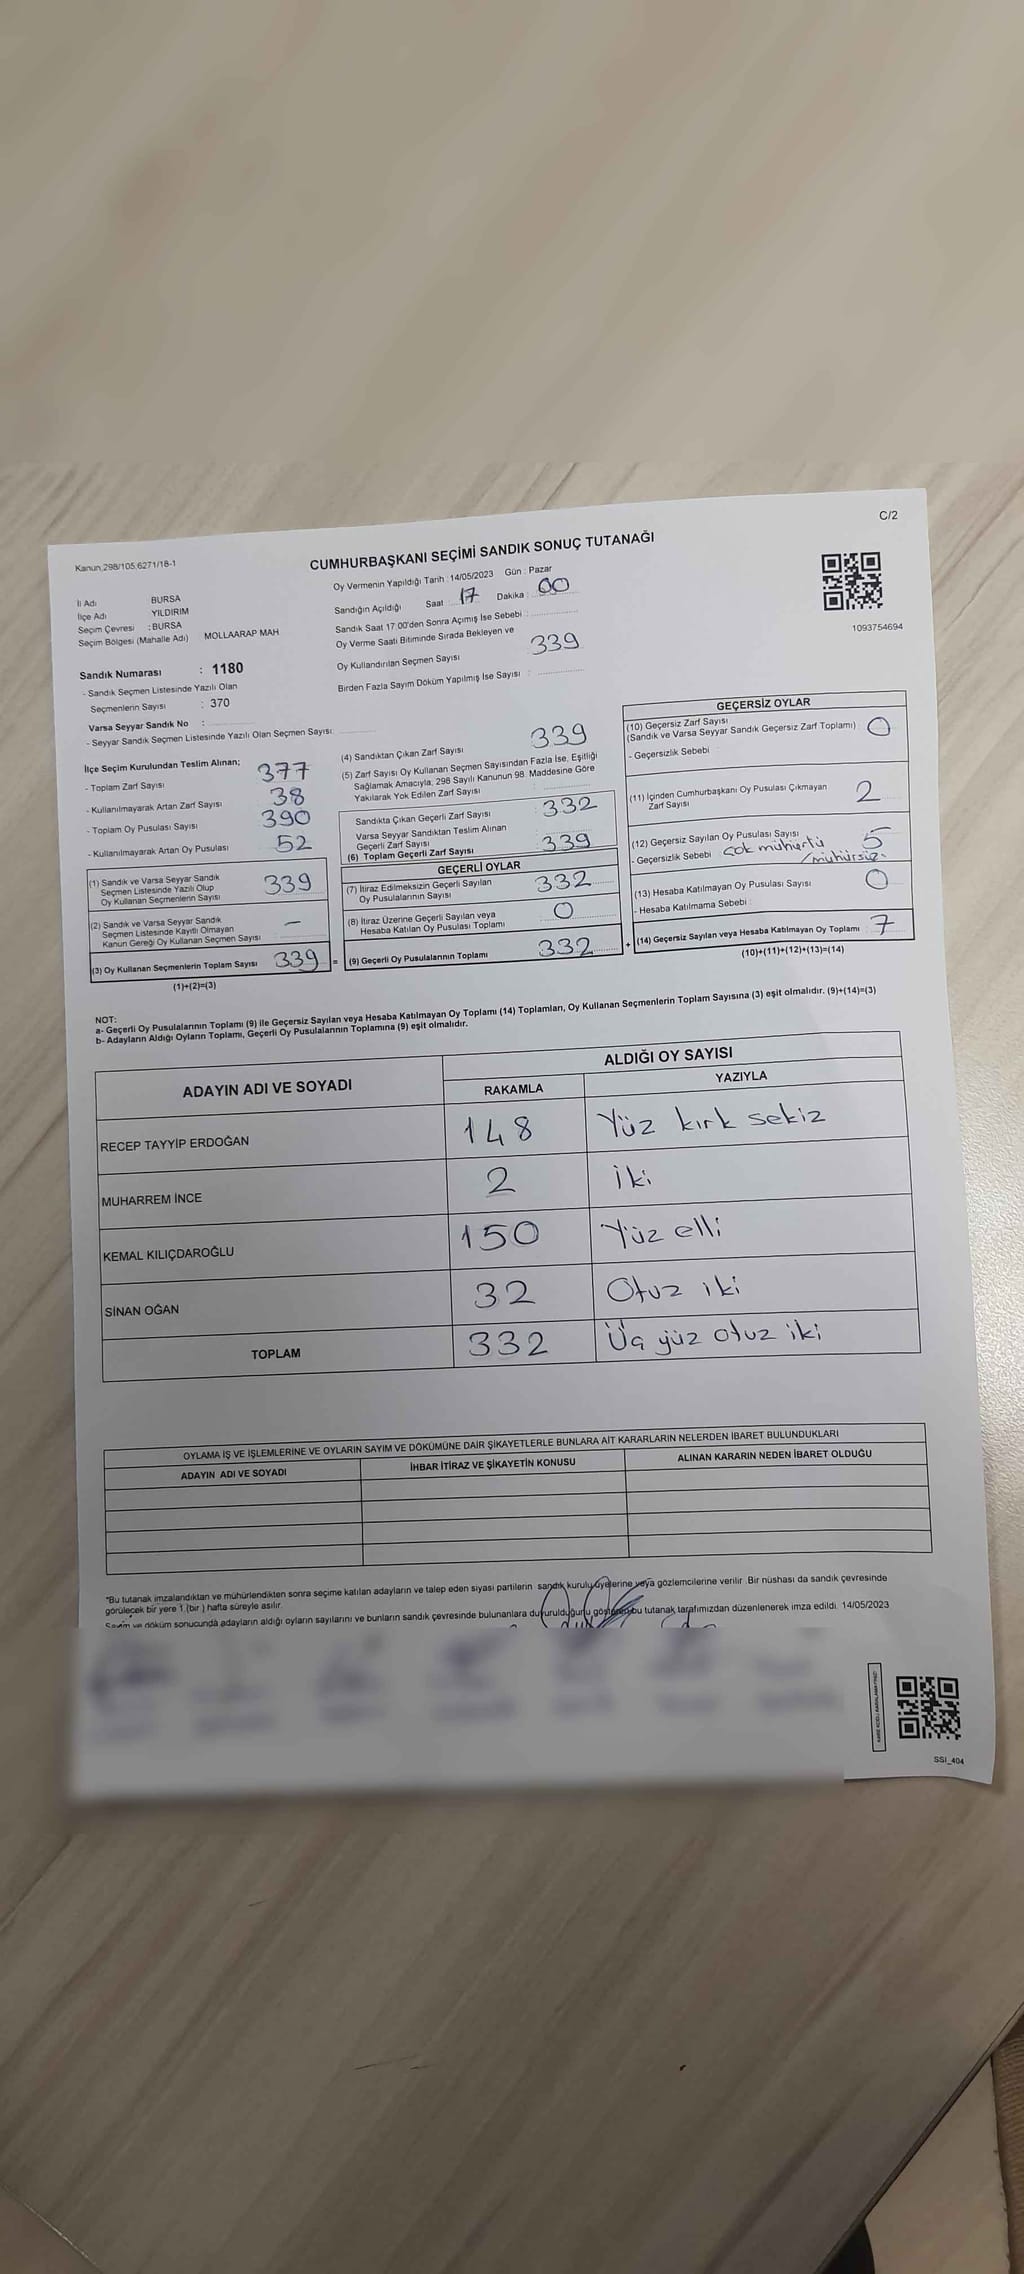 C/2
Kanun,298/105,6271/18-1
CUMHURBAŞKANI SEÇİMİ SANDIK SONUÇ TUTANAĞI
Oy Vermenin Yapıldığı Tarih : 14/05/2023 Gün : Pazar
İl Adı BURSA
İlçe Adı YILDIRIM
Seçim Çevresi : BURSA
Seçim Bölgesi (Mahalle Adı) MOLLAARAP MAH
Sandığın Açıldığı Saat 17 Dakika : 00
Sandık Saat 17:00'den Sonra Açımış İse Sebebi :
Oy Verme Saati Bitiminde Sırada Bekleyen ve
Oy Kullandırılan Seçmen Sayısı 339
Birden Fazla Sayım Döküm Yapılmış İse Sayısı :
1093754694
Sandık Numarası : 1180
- Sandık Seçmen Listesinde Yazılı Olan
Seçmenlerin Sayısı : 370
Varsa Seyyar Sandık No :
- Seyyar Sandık Seçmen Listesinde Yazılı Olan Seçmen Sayısı:
İlçe Seçim Kurulundan Teslim Alınan;
- Toplam Zarf Sayısı 377
- Kullanılmayarak Artan Zarf Sayısı 38
- Toplam Oy Pusulası Sayısı 390
- Kullanılmayarak Artan Oy Pusulası 52
(1) Sandık ve Varsa Seyyar Sandık
Seçmen Listesinde Yazılı Olup
Oy Kullanan Seçmenlerin Sayısı 339
(2) Sandık ve Varsa Seyyar Sandık
Seçmen Listesinde Kayıtlı Olmayan
Kanun Gereği Oy Kullanan Seçmen Sayısı —
(3) Oy Kullanan Seçmenlerin Toplam Sayısı 339 =
(1)+(2)=(3)
(4) Sandıktan Çıkan Zarf Sayısı 339
(5) Zarf Sayısı Oy Kullanan Seçmen Sayısından Fazla İse, Eşitliği
Sağlamak Amacıyla, 298 Sayılı Kanunun 98. Maddesine Göre
Yakılarak Yok Edilen Zarf Sayısı :
Sandıkta Çıkan Geçerli Zarf Sayısı : 332
Varsa Seyyar Sandıktan Teslim Alınan
Geçerli Zarf Sayısı :
(6) Toplam Geçerli Zarf Sayısı 339
GEÇERLİ OYLAR
(7) İtiraz Edilmeksizin Geçerli Sayılan
Oy Pusulalarının Sayısı : 332
(8) İtiraz Üzerine Geçerli Sayılan veya
Hesaba Katılan Oy Pusulası Toplamı : 0
(9) Geçerli Oy Pusulalarının Toplamı : 332 +
GEÇERSİZ OYLAR
(10) Geçersiz Zarf Sayısı
(Sandık ve Varsa Seyyar Sandık Geçersiz Zarf Toplamı) 0
- Geçersizlik Sebebi :
(11) İçinden Cumhurbaşkanı Oy Pusulası Çıkmayan
Zarf Sayısı 2
(12) Geçersiz Sayılan Oy Pusulası Sayısı 5
- Geçersizlik Sebebi : Çok mühürlü
/mühürsüz.
(13) Hesaba Katılmayan Oy Pusulası Sayısı 0
- Hesaba Katılmama Sebebi :
(14) Geçersiz Sayılan veya Hesaba Katılmayan Oy Toplamı : 7
(10)+(11)+(12)+(13)=(14)
NOT:
a- Geçerli Oy Pusulalarının Toplamı (9) ile Geçersiz Sayılan veya Hesaba Katılmayan Oy Toplamı (14) Toplamları, Oy Kullanan Seçmenlerin Toplam Sayısına (3) eşit olmalıdır. (9)+(14)=(3)
b- Adayların Aldığı Oyların Toplamı, Geçerli Oy Pusulalarının Toplamına (9) eşit olmalıdır.
ADAYIN ADI VE SOYADI ALDIĞI OY SAYISI
RAKAMLA YAZIYLA
RECEP TAYYİP ERDOĞAN 148 Yüz kırk sekiz
MUHARREM İNCE 2 İki
KEMAL KILIÇDAROĞLU 150 Yüz elli
SİNAN OĞAN 32 Otuz iki
TOPLAM 332 Üç yüz otuz iki
OYLAMA İŞ VE İŞLEMLERİNE VE OYLARIN SAYIM VE DÖKÜMÜNE DAİR ŞİKAYETLERLE BUNLARA AİT KARARLARIN NELERDEN İBARET BULUNDUKLARI
ADAYIN ADI VE SOYADI İHBAR İTİRAZ VE ŞİKAYETİN KONUSU ALINAN KARARIN NEDEN İBARET OLDUĞU
"Bu tutanak imzalandıktan ve mühürlendikten sonra seçime katılan adayların ve talep eden siyasi partilerin sandık kurulu üyelerine veya gözlemcilerine verilir. Bir nüshası da sandık çevresinde
görülecek bir yere 1 (bir ) hafta süreyle asılır.
Sayım ve döküm sonucunda adayların aldığı oyların sayılarını ve bunların sandık çevresinde bulunanlara duyurulduğunu gösteren bu tutanak tarafımızdan düzenlenerek imza edildi. 14/05/2023
SSI_404